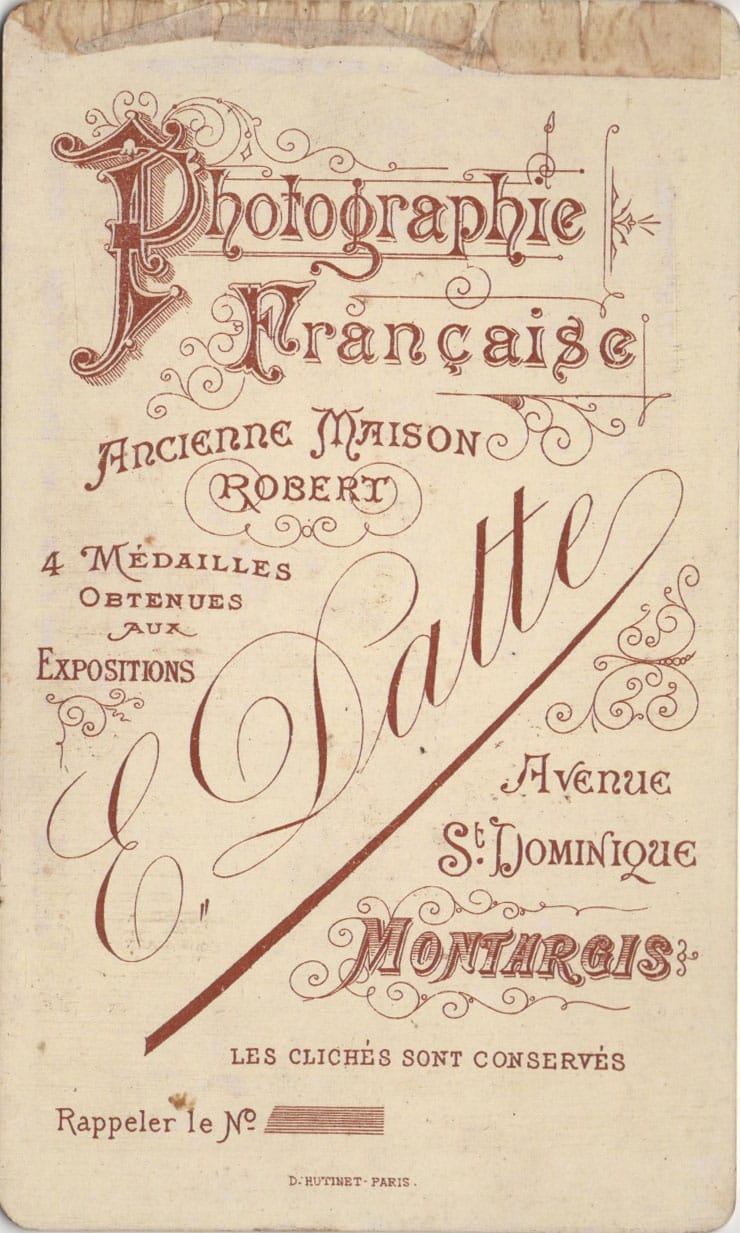 Photographie
Française
Ancienne Maison
Robert
4 Médailles
Obtenues
aux
Expositions
E. Datte
Avenue
St. Dominique
Montargis
LES CLICHÉS SONT CONSERVÉS
Rappeler le No
D. HUTINET - PARIS.